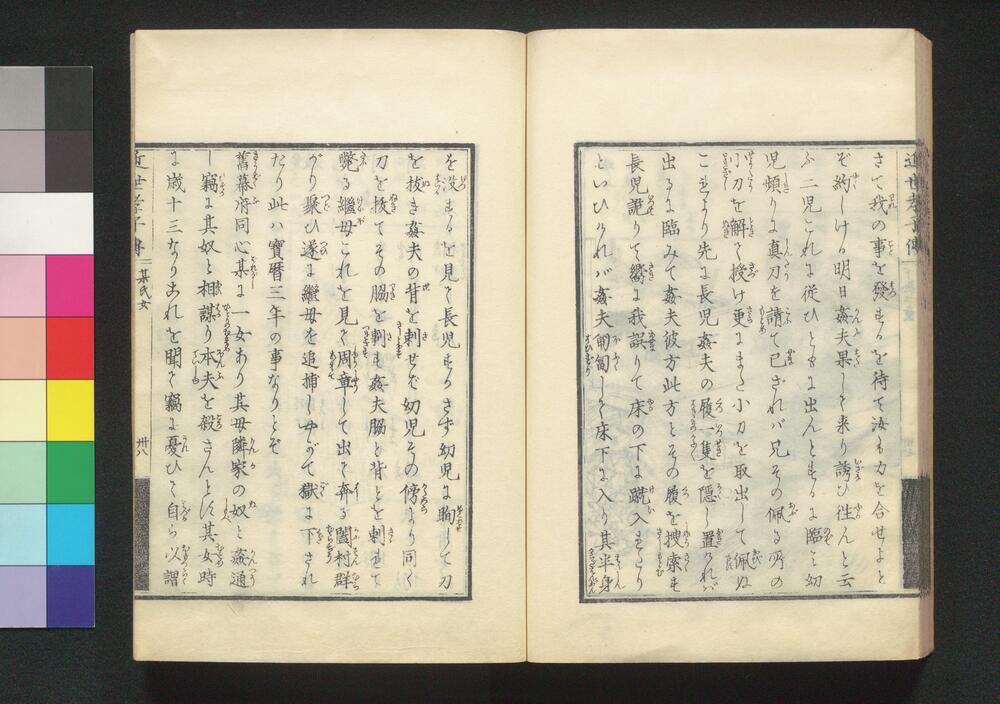 さて我の事を發するを待て汝も力を合せよと
ぞ約しける明日姦夫果して来り誘ひ徃んと云
ふ二児これに従ひともに出んとするに臨み幼
児頻りに真刀を請て已ざれバ兄その佩る所の
小刀を解て授け更にまた小刀を取出して佩ぬ
これより先に長児姦夫の履一隻を隠し置けれバ
出るに臨みて姦夫彼方此方とその履を捜索も
長児詭りて嚮に我誤りて床の下に蹴入れたり
といひけれバ姦夫匍匐して床下に入り其半身
を没するを見て長児すかさず幼児に眴して刀
を抜き姦夫の背を刺せば幼児その傍より同く
刀を抜てその脇を刺す姦夫脇と背とを刺れて
斃る継母これを見て周章して出て奔る闔村群
がり聚ひ遂に継母を追捕しやがて獄に下され
たり此ハ寶暦三年の事なりとぞ
舊幕府同心某に一女あり其母隣家の奴と姦通
し竊に其奴と相謀り本夫を殺さんとす其女時
に歳十三なりこれを聞て竊に憂ひて自ら以謂
近世孝子傳
某氏女
卅八